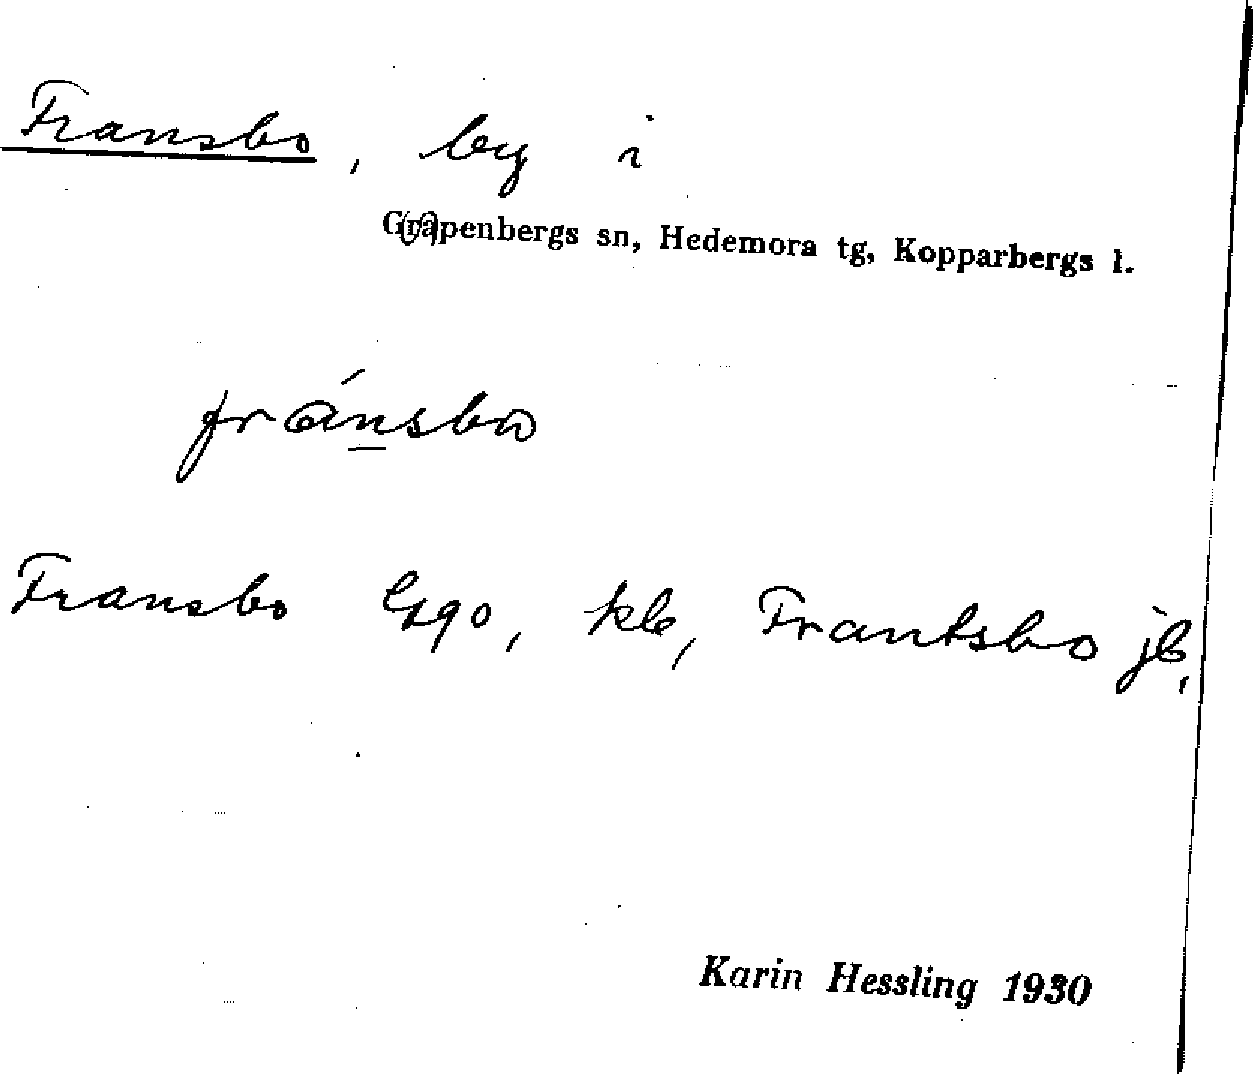 Fransbo, by i
Garpenbergs sn, Hedemora tg, Kopparbergs l.
fránsbω
Fransbo Gsqo, kb, Frantsbo jb,
Karin Hessling 1930